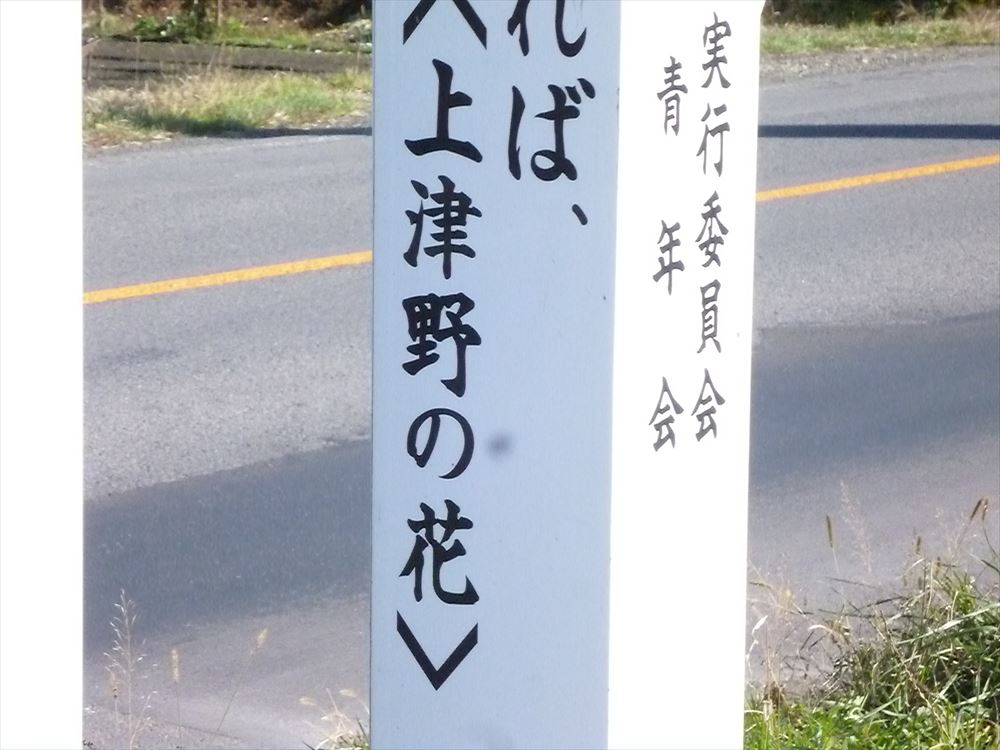 れば、
〈上津野の花〉
実行委員会
青年会